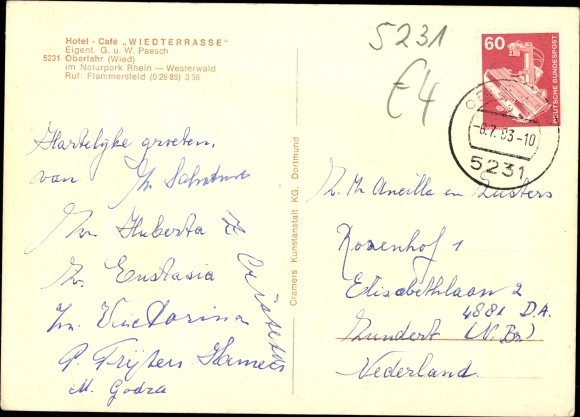 Hotel - Café „WIEDTERRASSE"
Eigent. G. u. W. Paesch
5231 Oberlahr (Wied)
im Naturpark Rhein — Westerwald
Ruf: Flammersfeld (0 26 85) 3 56
5231
€4
60
DEUTSCHE BUNDESPOST
-6.7.83-10
5231
Hartelijke groeten,
van
Zr. Huberta
Zr. Eustasia
Zr. Victorina
P. Trijsen
M. Godza
Cramers Kunstanstalt KG. Dortmund
Z. M. Ancilla en Zusters
Rozenhof 1
Elisabethlaan 2
4881 D.A.
Zundert (N. Br.)
Nederland.